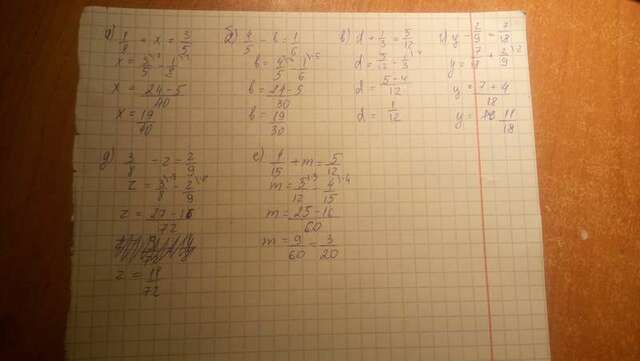 а) 1/8 + x = 3/5
x = 3/5 - 1/8
x = 24-5/40
x = 19/40
б) 4/5 - b = 1/6
b = 4/5 - 1/6
b = 24-5/30
b = 19/30
в) d + 1/3 = 5/12
d = 5/12 - 1/3
d = 5-4/12
d = 1/12
г) y - 2/9 = 7/18
y = 7/18 + 2/9
y = 7+4/18
y = 11/18
д) 3/8 - z = 2/9
z = 3/8 - 2/9
z = 27-16/72
z = 11/72
е) 4/15 + m = 5/12
m = 5/12 - 4/15
m = 25-16/60
m = 9/60 = 3/20